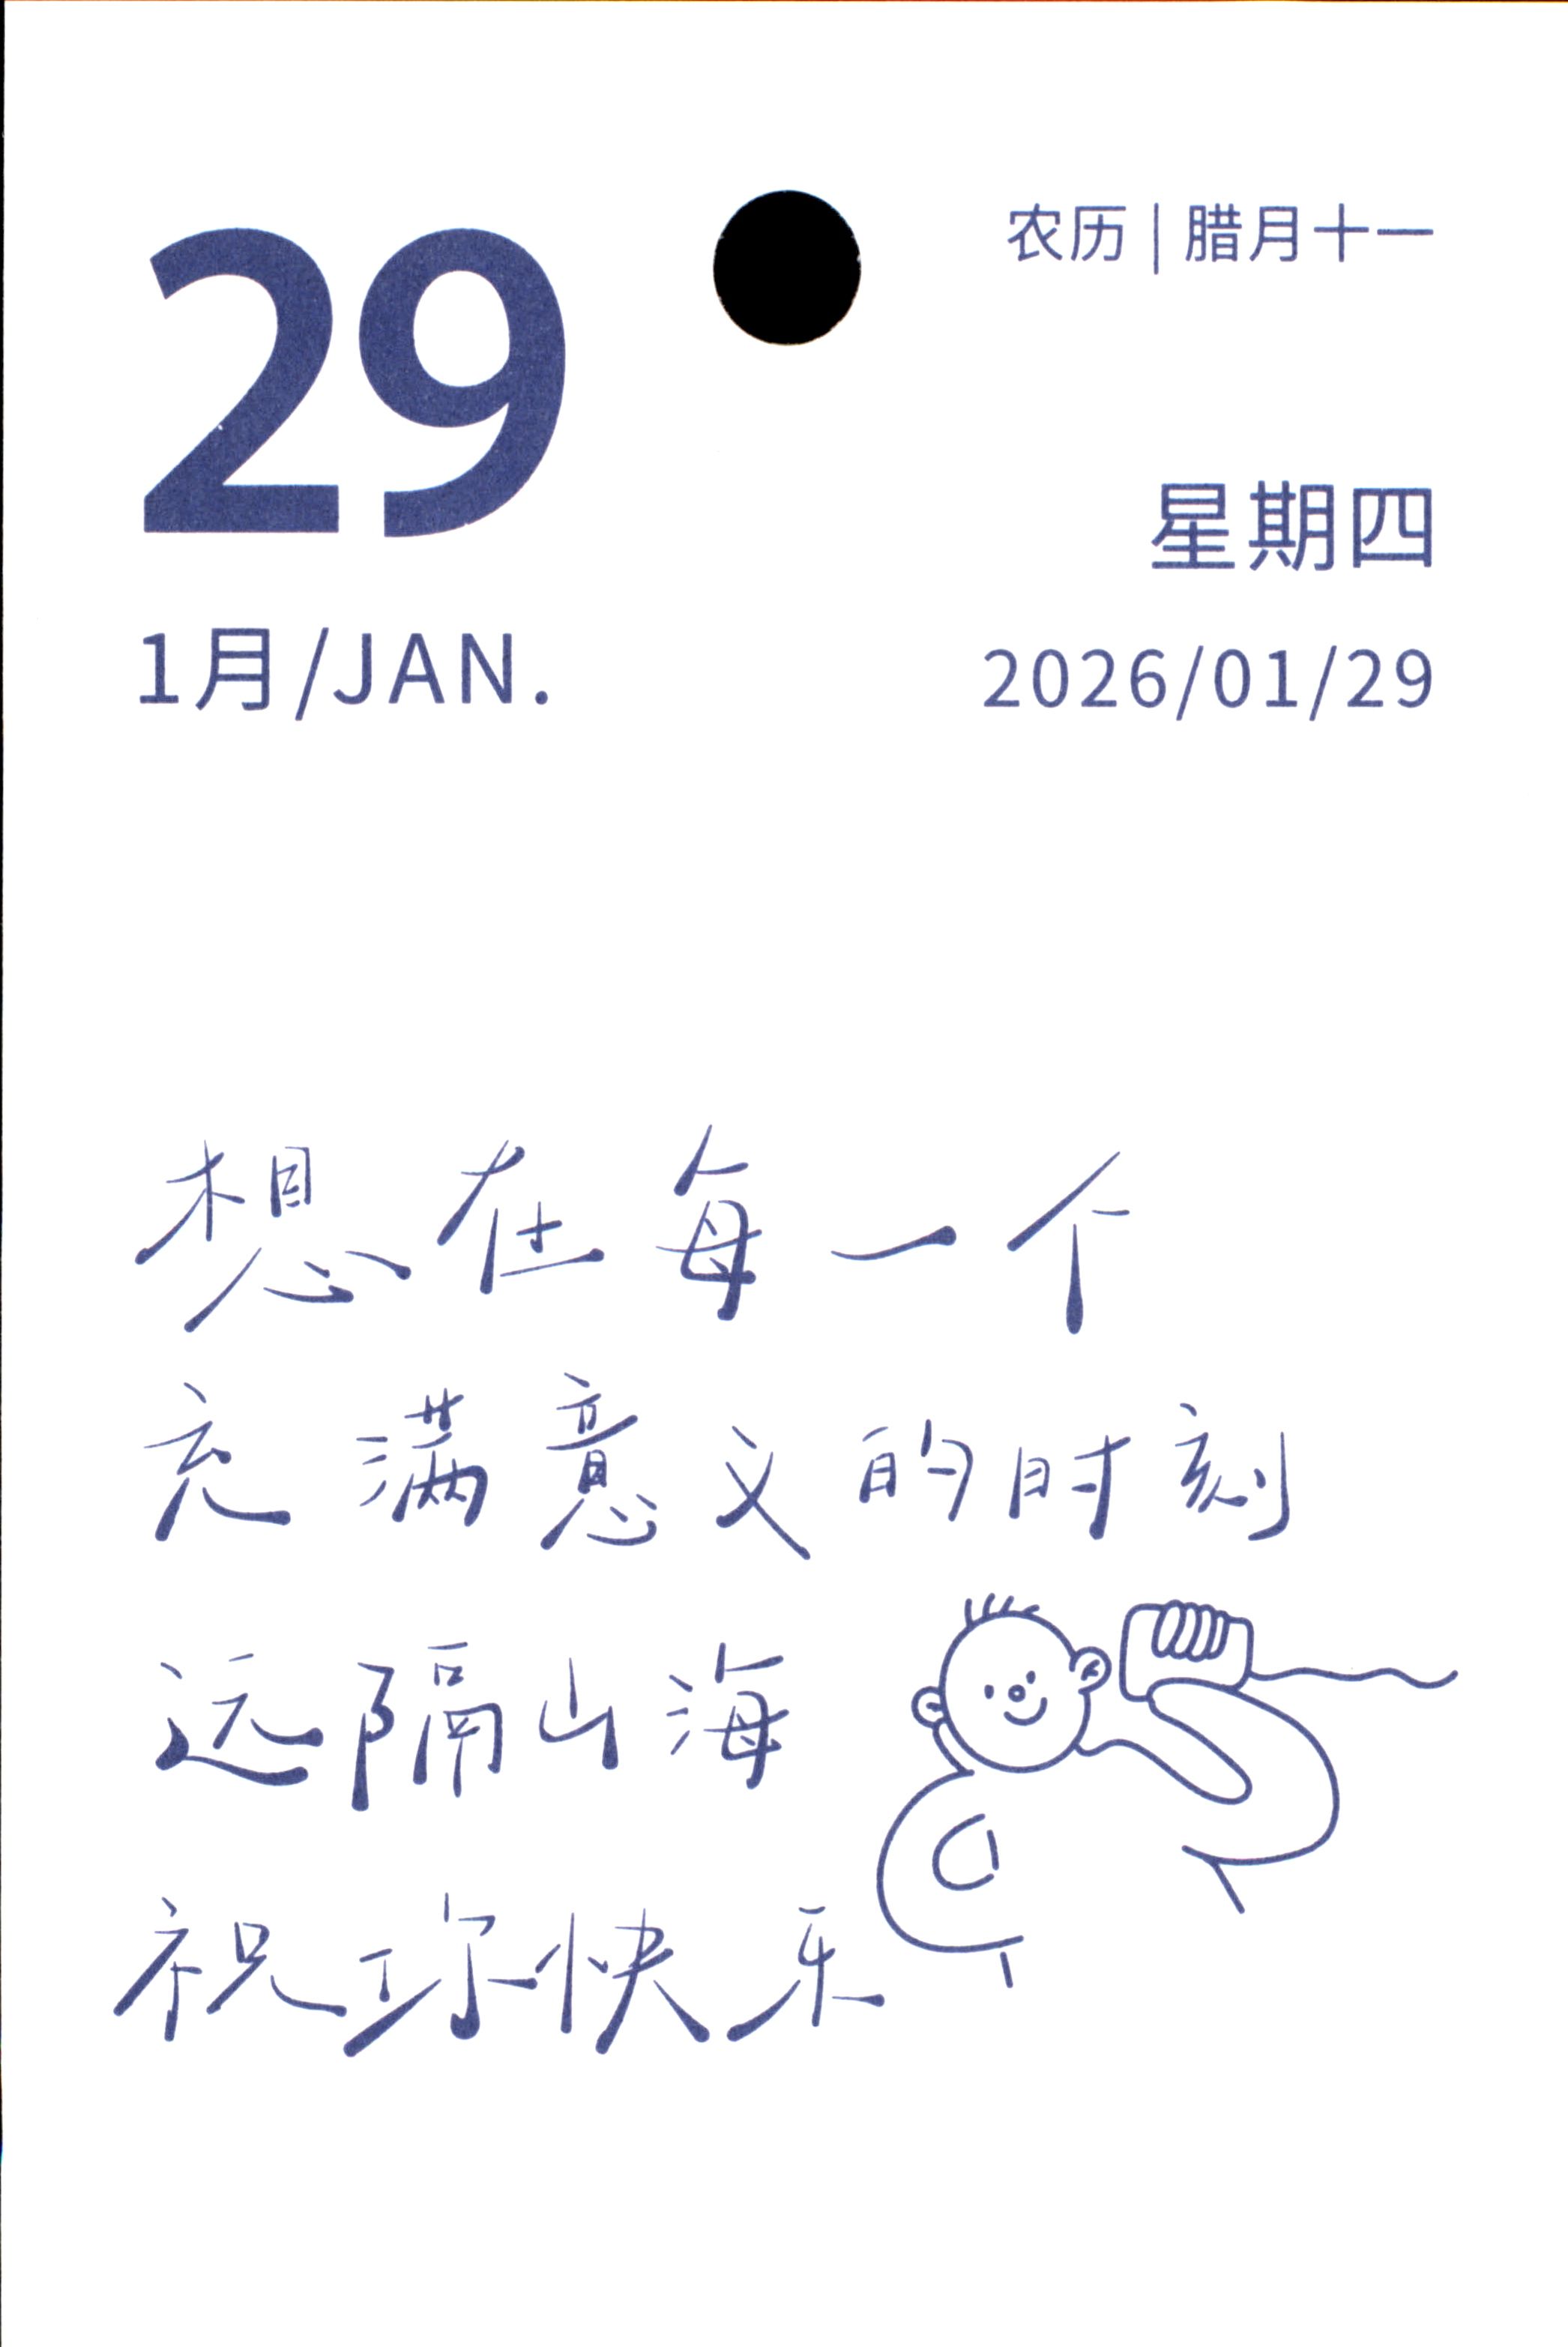 29
1月/JAN.
农历|腊月十一
星期四
2026/01/29
想在每一个
充满意义的时刻
远隔山海
祝你快乐